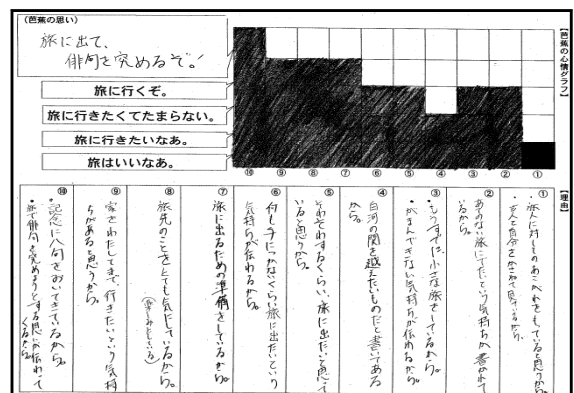 (芭蕉の思い)
旅に出て、
俳句を究めるぞ。!
旅に行くぞ。
旅に行きたくてたまらない。
旅に行きたいなあ。
旅はいいなあ。
【芭蕉の心情グラフ】
① ② ③ ④ ⑤ ⑥ ⑦ ⑧ ⑨ ⑩
【理由】
①
・旅人に対してのあこがれをもっていると思うから。
②
あてのない旅にでたいという気持ちが書かれて
いるから。
③
・もうすでに小さな旅をしているから。
・がまんできない気持ちが伝わるから。
④
白河の関を越えたいものだと書いてある
から。
⑤
そわそわするくらい、旅に出たいと思って
いると思うから。
⑥
何も手につかないくらい旅に出たいという
気持ちが伝わるから。
⑦
旅に出るための準備をしているから。
⑧
旅先のことをとても気にしているから。
⑨
家をわたしてまで、行きたいという気持
ちがあると思うから。
⑩
・記念に八句をおいてきているから。
・旅で俳句を究めようとする思いが伝わって
くるから。